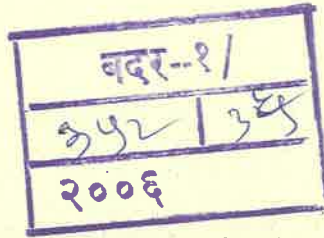 बदर--१/
३५२ |
२००६